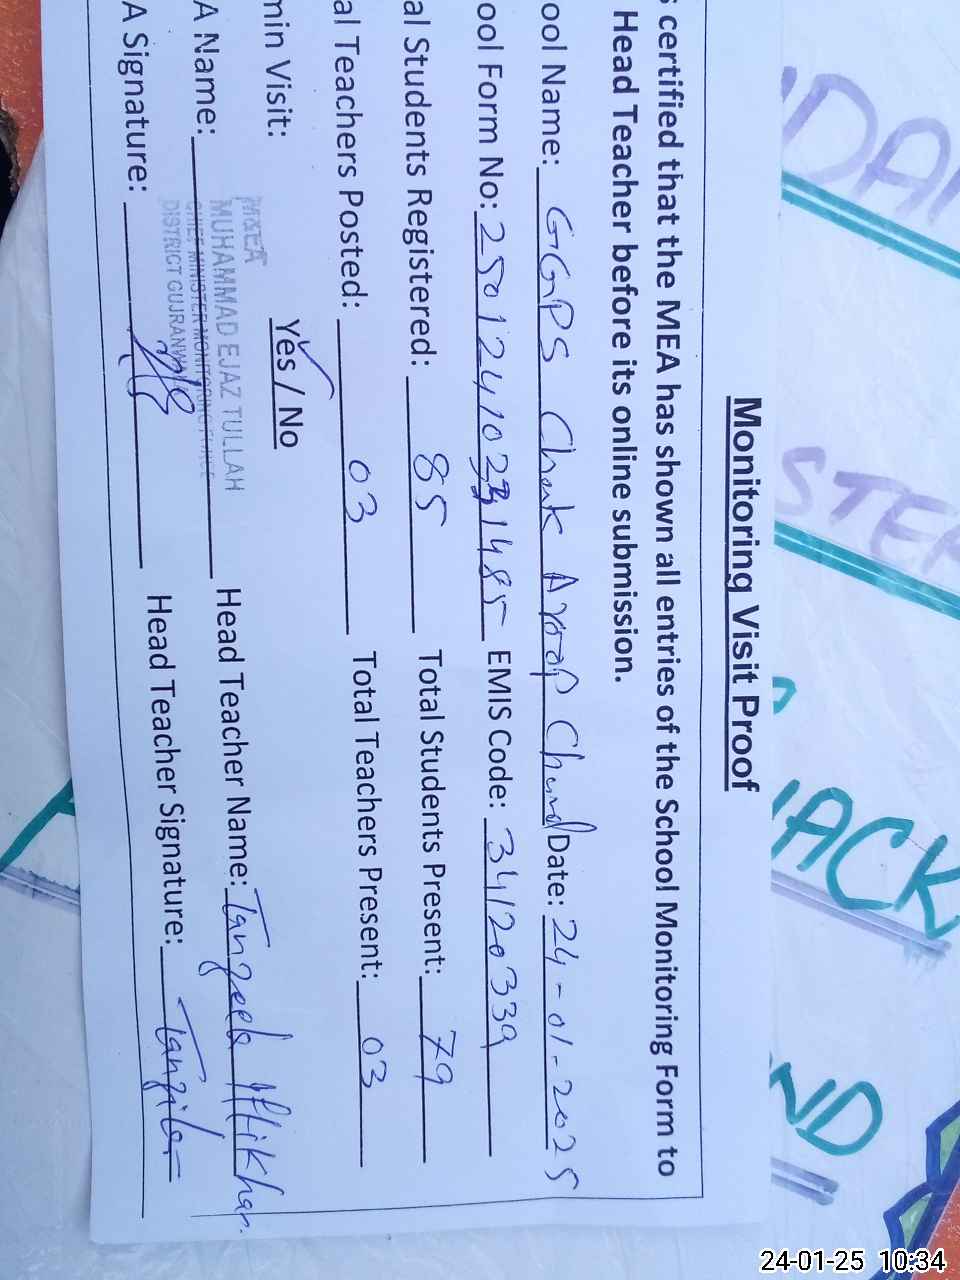 Monitoring Visit Proof
certified that the MEA has shown all entries of the School Monitoring Form to
Head Teacher before its online submission.
ool Name: GGPS Chak Aroop Chand Date: 24-01-2025
ool Form No: EMIS Code: 34120339
al Students Registered: 85 Total Students Present: 79
al Teachers Posted: 03 Total Teachers Present: 03
min Visit: Yes / No
M&EA
MUHAMMAD EJAZ TULLAH
A Name: CHIEF MINISTER MONITORING FORCE Head Teacher Name: Tanzeela Iftikhar.
DISTRICT GUJRANWALA
A Signature: Head Teacher Signature: Tanzila
DAI
STER
ACK
ND
24-01-25 10:34